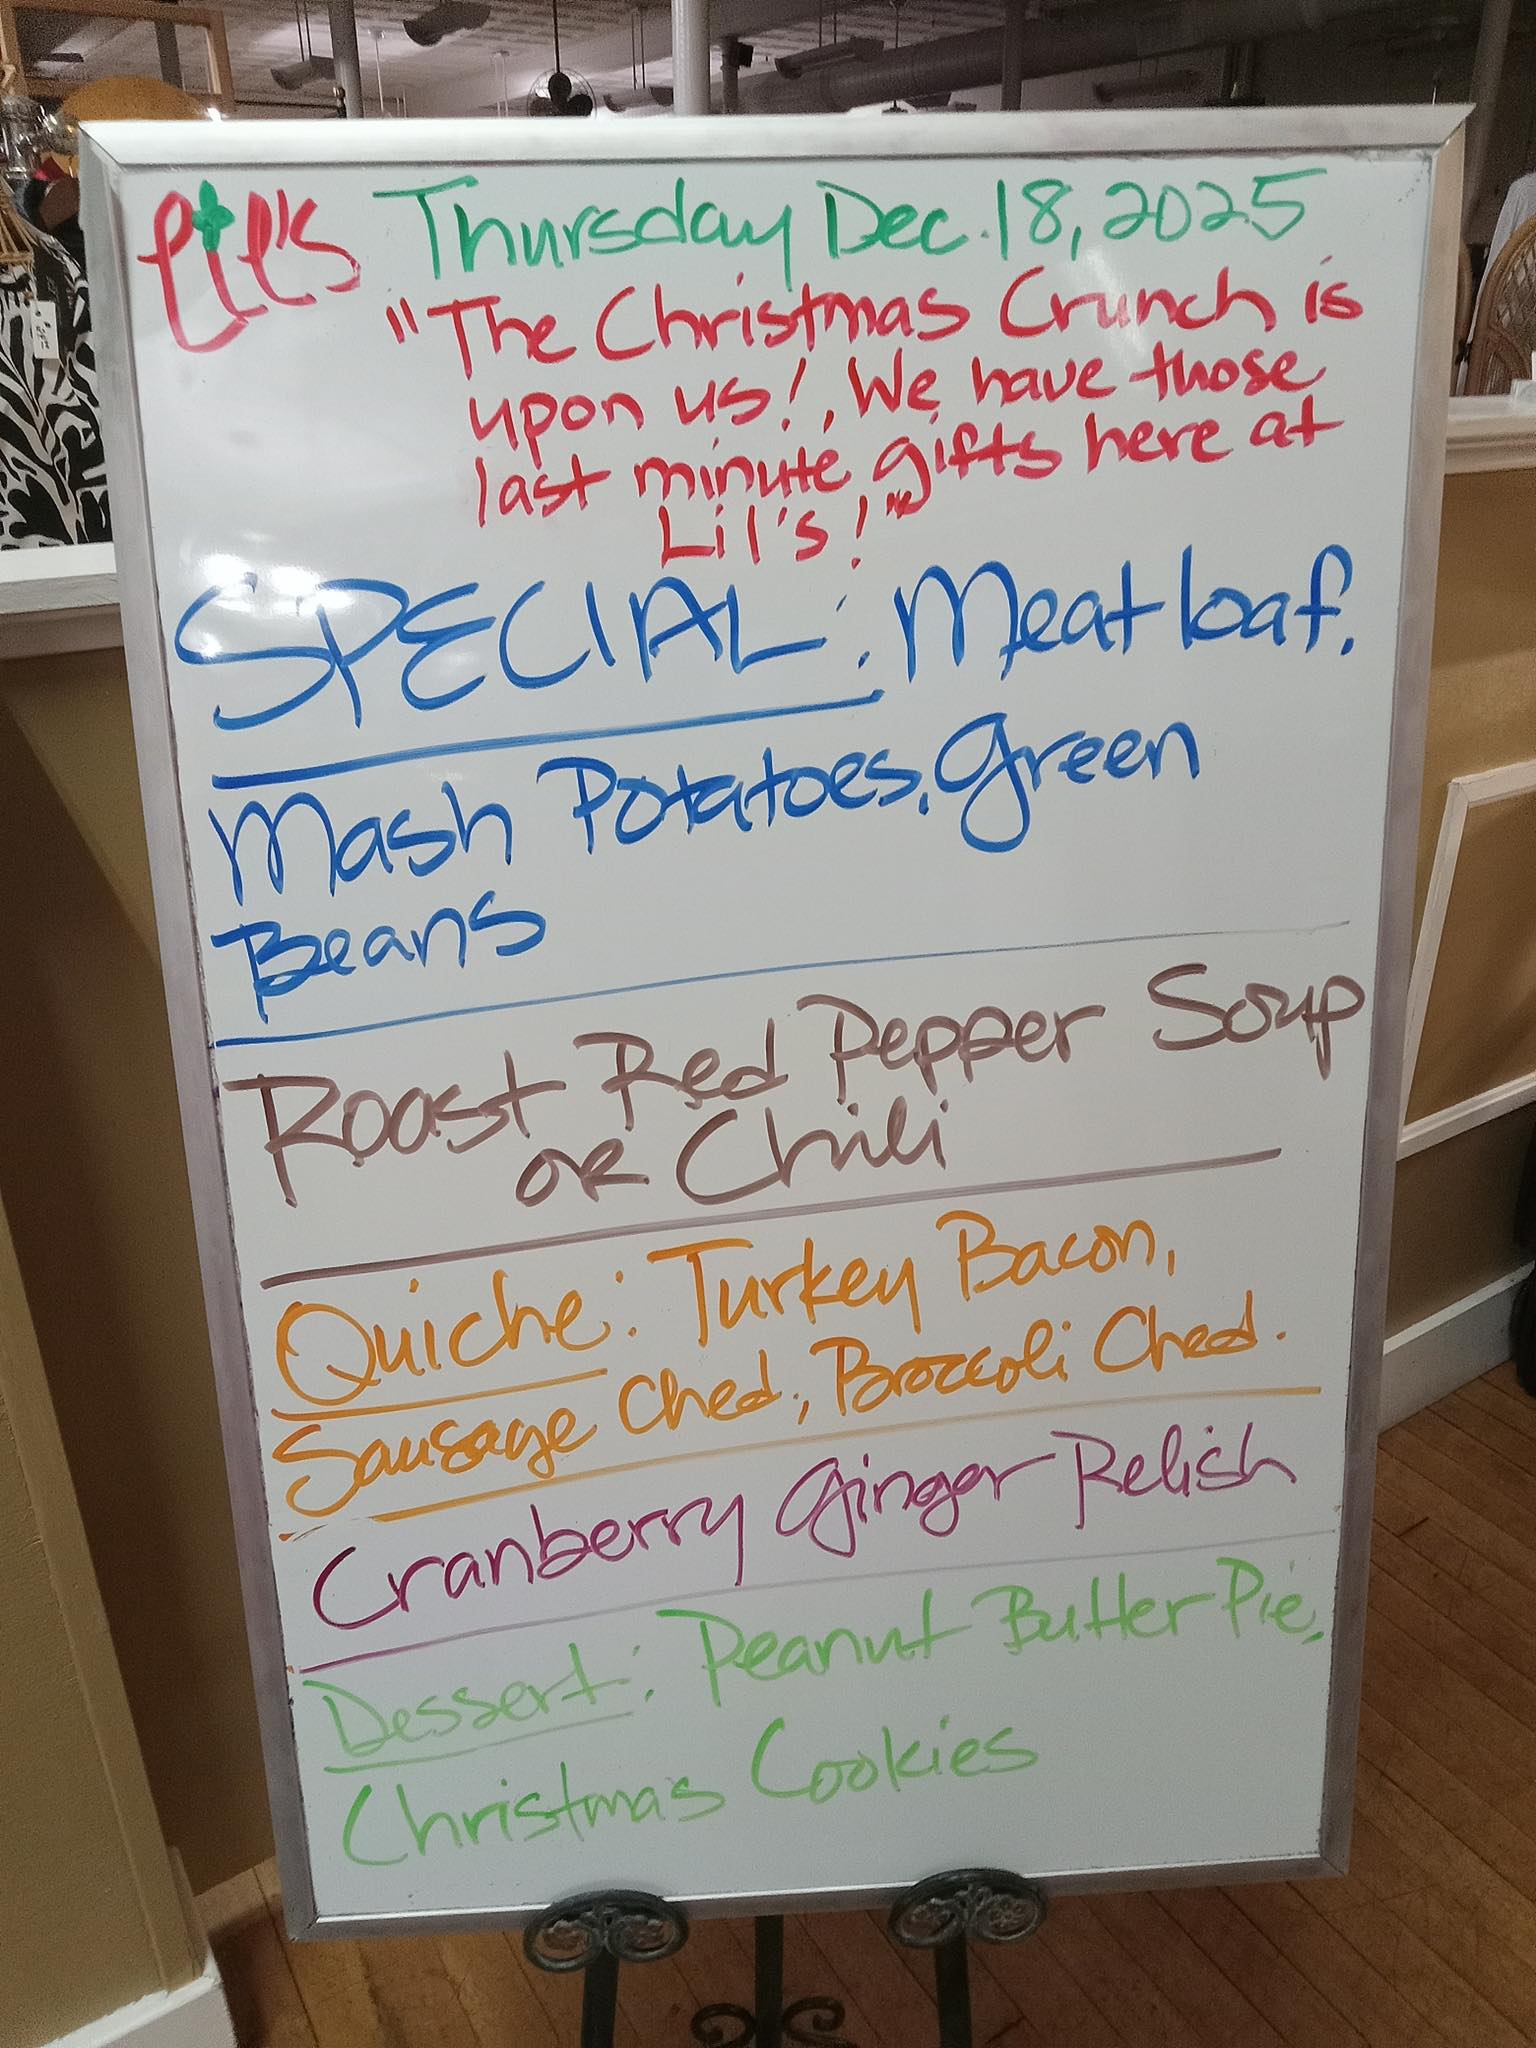 Lil's Thursday Dec. 18, 2025
"The Christmas Crunch is
upon us! We have those
last minute gifts here at
Lil's!"
SPECIAL: Meatloaf,
Mash Potatoes, Green
Beans
Roast Red Pepper Soup
or Chili
Quiche: Turkey Bacon,
Sausage Ched, Broccoli Ched.
Cranberry Ginger Relish
Dessert: Peanut Butter Pie,
Christmas Cookies